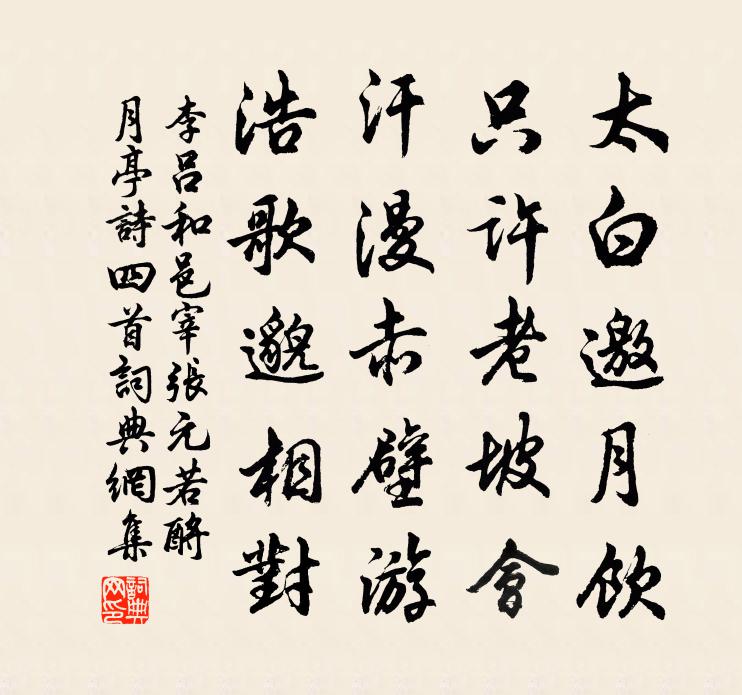 太白邀月飲
只許老坡會
汗漫赤壁游
浩歌邈相對
李呂和邑宰張元若酹
月亭詩四首詞典網集
詞典網印